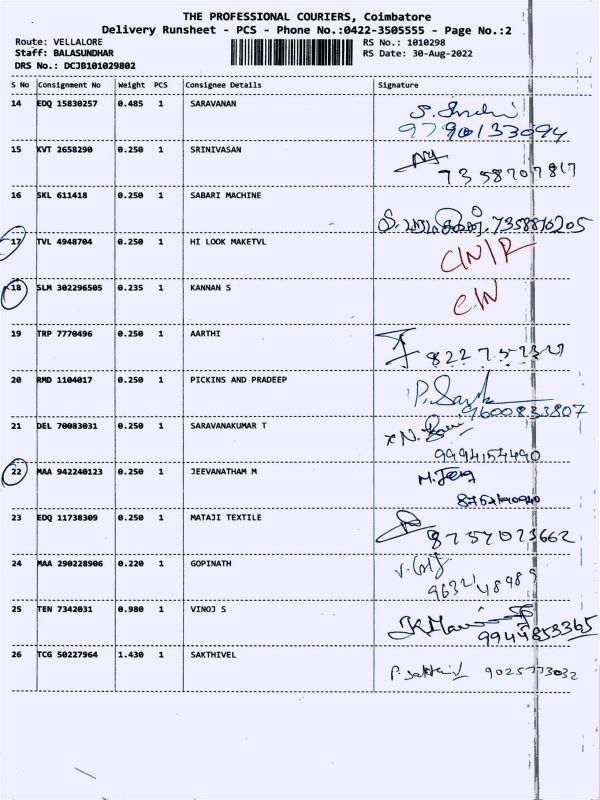 THE PROFESSIONAL COURIERS, Coimbatore
Delivery Runsheet - PCS - Phone No.:0422-3505555 - Page No.:2
Route: VELLALORE RS No.: 1010298
Staff: BALASUNDHAR RS Date: 30-Aug-2022
DRS No.: DCJB101029802
S No Consignment No Weight PCS Consignee Details Signature
14 EDQ 15830257 0.485 1 SARAVANAN
9790133094
15 KVT 2658290 0.250 1 SRINIVASAN
7358707817
16 SKL 611418 0.250 1 SABARI MACHINE
7358810205
17 TVL 4948704 0.250 1 HI LOOK MAKETVL C/N/R
18 SLM 302296505 0.235 1 KANNAN S C/N
19 TRP 7770496 0.250 1 AARTHI
20 RMD 1104017 0.250 1 PICKINS AND PRADEEP
9600833807
21 DEL 70083031 0.250 1 SARAVANAKUMAR T
9994154490
22 MAA 942240123 0.250 1 JEEVANATHAM M
23 EDQ 11738309 0.250 1 MATAJI TEXTILE
24 MAA 290228906 0.220 1 GOPINATH
25 TEN 7342031 0.980 1 VINOJ S
9944853365
26 TCG 50227964 1.430 1 SAKTHIVEL
P. Sakthivel 9025773032